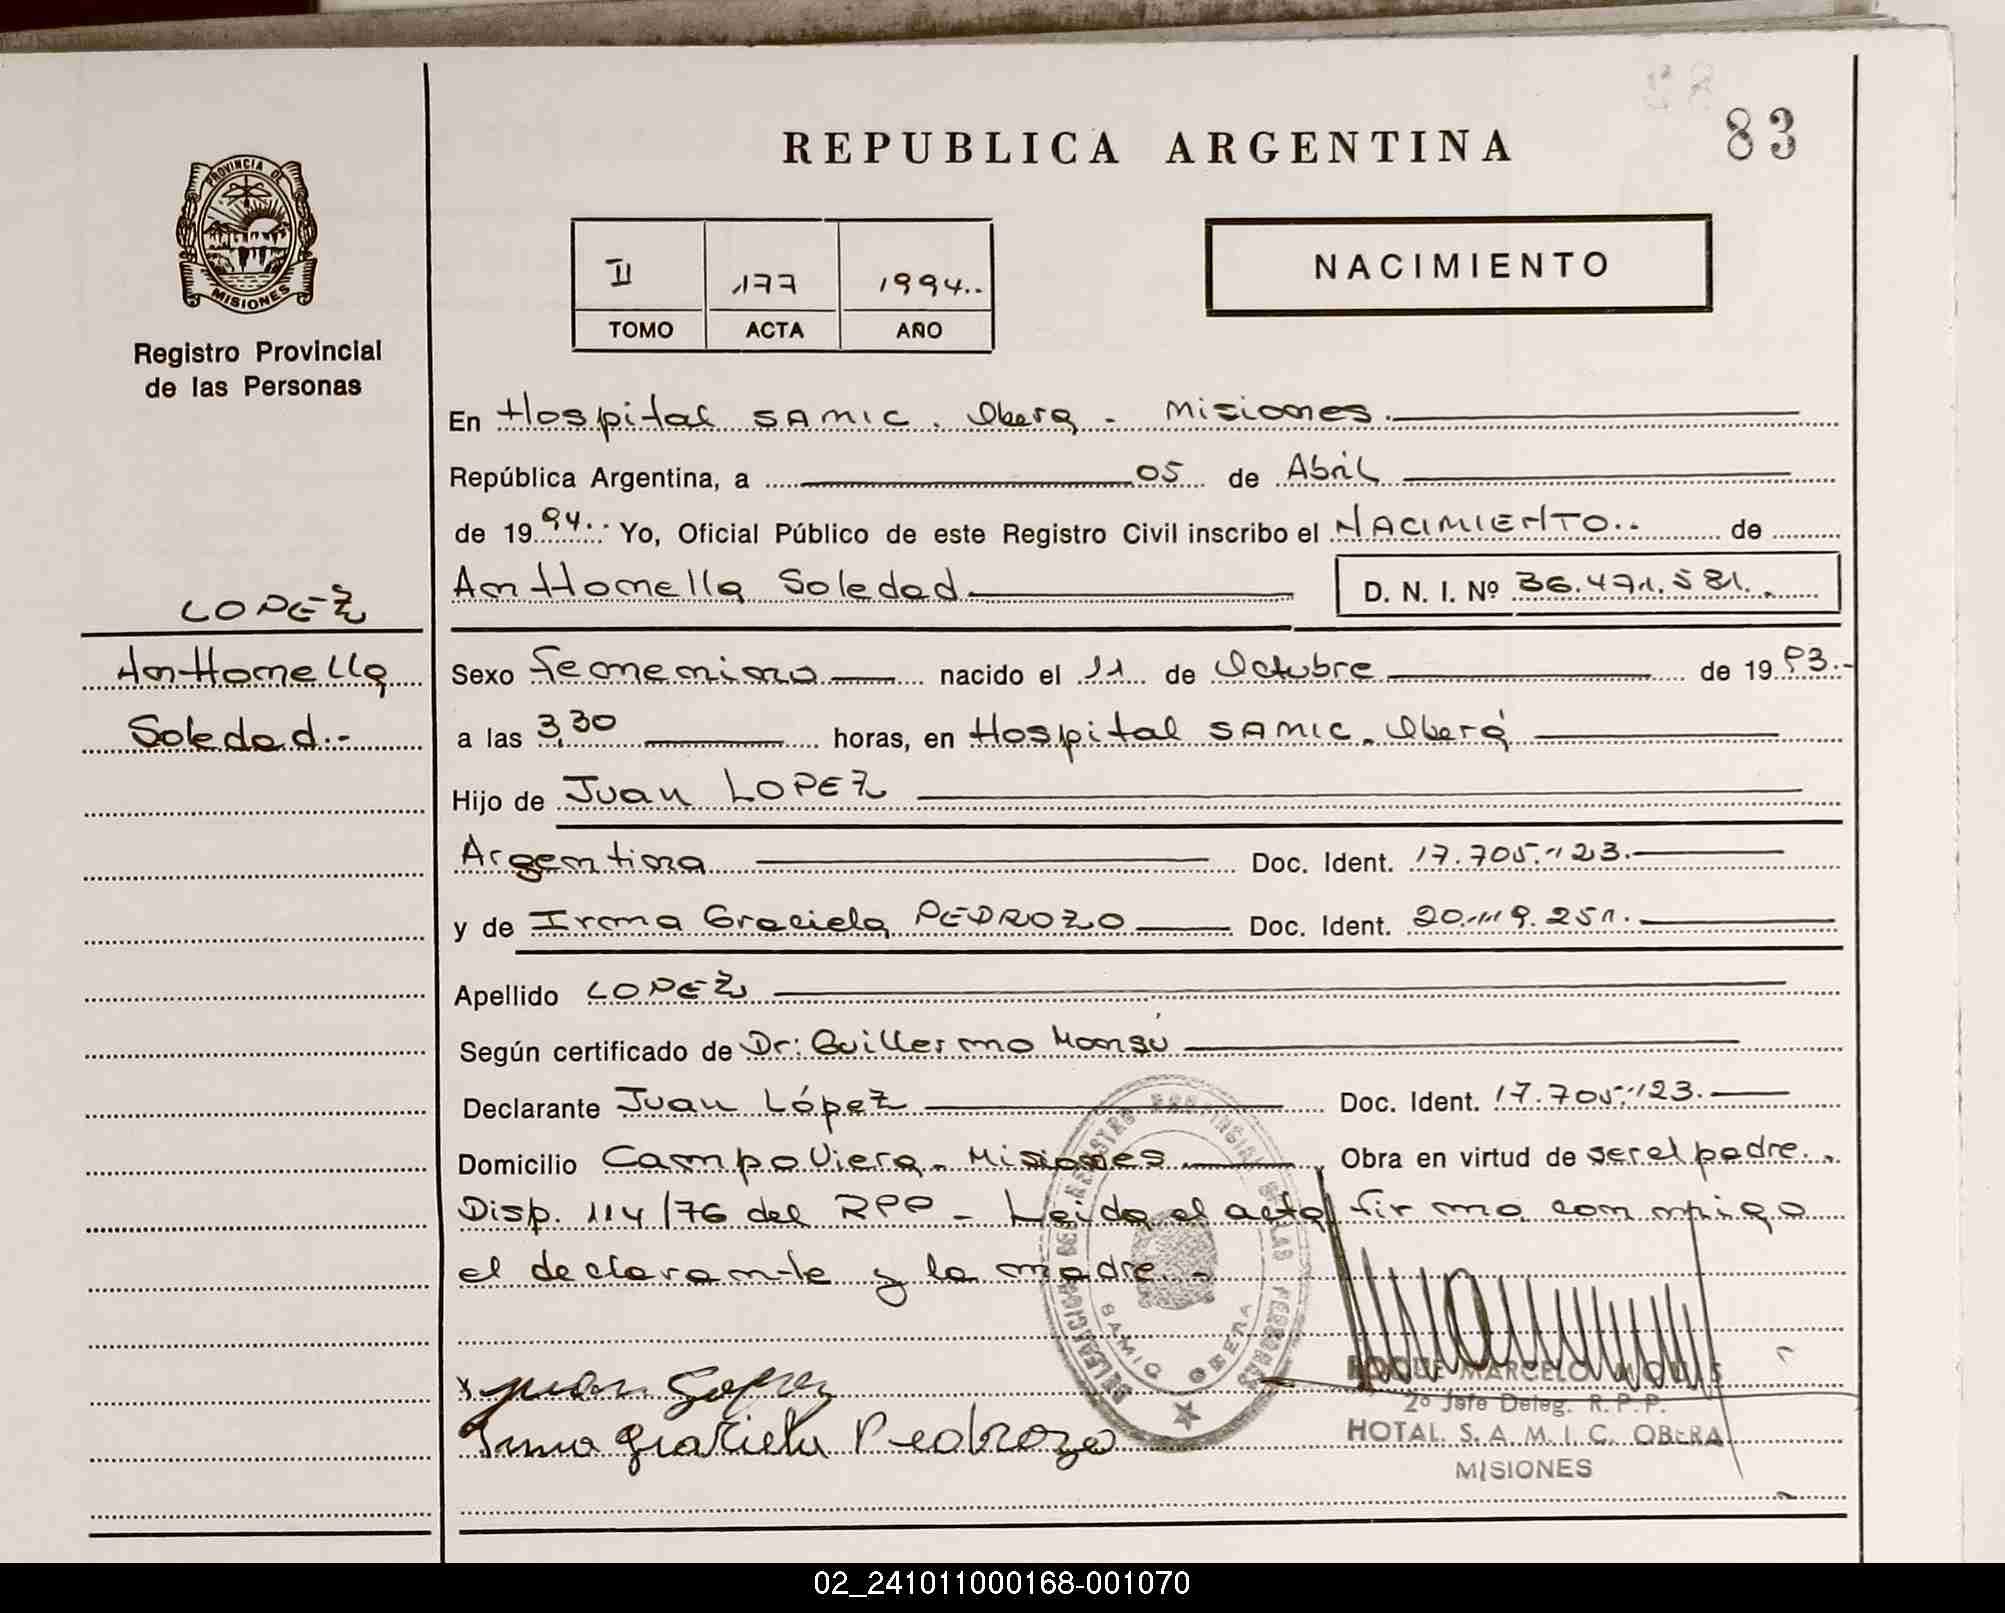 83
REPUBLICA ARGENTINA
PROVINCIA DE
MISIONES
Registro Provincial
de las Personas
II 177 1994..
TOMO ACTA AÑO
NACIMIENTO
En Hospital SAMIC. Obera - Misiones.
República Argentina, a 05 de Abril
de 1994.. Yo, Oficial Público de este Registro Civil inscribo el NACIMIENTO.. de
Anttonella Soledad D. N. I. Nº 36.471.581.
LOPEZ
Anttonella
Soledad.-
Sexo femenino nacido el 11 de Octubre de 1993.-
a las 3,30 horas, en Hospital SAMIC. Oberá
Hijo de Juan LOPEZ
Argentina Doc. Ident. 17.705.123.
y de Irma Graciela PEDROZO Doc. Ident. 20.119.251.
Apellido LOPEZ
Según certificado de Dr: Guillermo
Declarante Juan López Doc. Ident. 17.705.123.
Domicilio Campo Viera - Misiones Obra en virtud de ser el padre.
Disp. 114/76 del RPP - Leida el acta, firma conmigo
el declarante y la madre.-
DELEGACION DEL REGISTRO PROVINCIAL DE LAS PERSONAS
SAMIC OBERA
x Juan Lopez
Irma Graciela Pedrozo
ROQUE MARCELO
2º Jefe Deleg. R.P.P.
HOTAL. S. A. M. I. C. OBERA
MISIONES
02_241011000168-001070